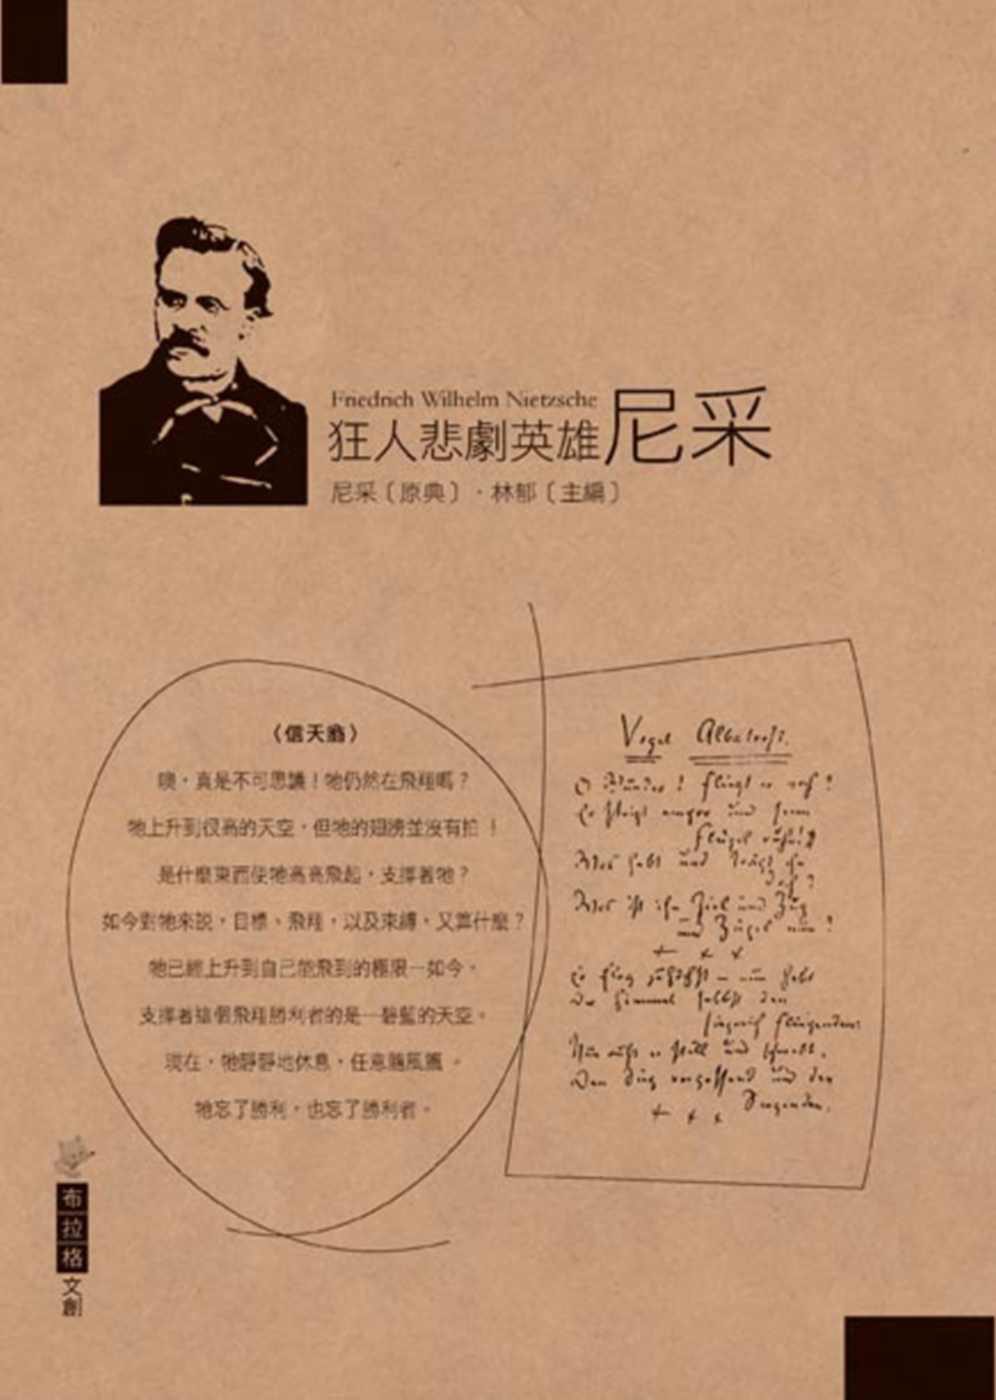 Friedrich Wilhelm Nietzsche
狂人悲劇英雄尼采
尼采〔原典〕·林郁〔主編〕
〈信天翁〉
噢，真是不可思議！牠仍然在飛翔嗎？
牠上升到很高的天空，但牠的翅膀並沒有拍！
是什麼東西使牠高高飛起，支撐著牠？
如今對牠來說，目標、飛翔，以及束縛，又算什麼？
牠已經上升到自己能飛到的極限—如今，
支撐著這個飛翔勝利者的是—碧藍的天空。
現在，牠靜靜地休息，任意隨風飄。
牠忘了勝利，也忘了勝利者。
Vogel Albatross.
O Wunder! Fliegt er noch?
Er steigt empor und seine
Flügel ruhn!
Was hebt und trägt ihn
doch?
Was ist ihm Ziel und Zug
und Zügel nun?
+ x x
Er flog zuhöchst — nun hebt
Der Himmel selbst den
siegreich Fliegenden:
Nun ruht er still und schwebt,
Den Sieg vergessend und den
Siegenden.
+ x x
布拉格
文創